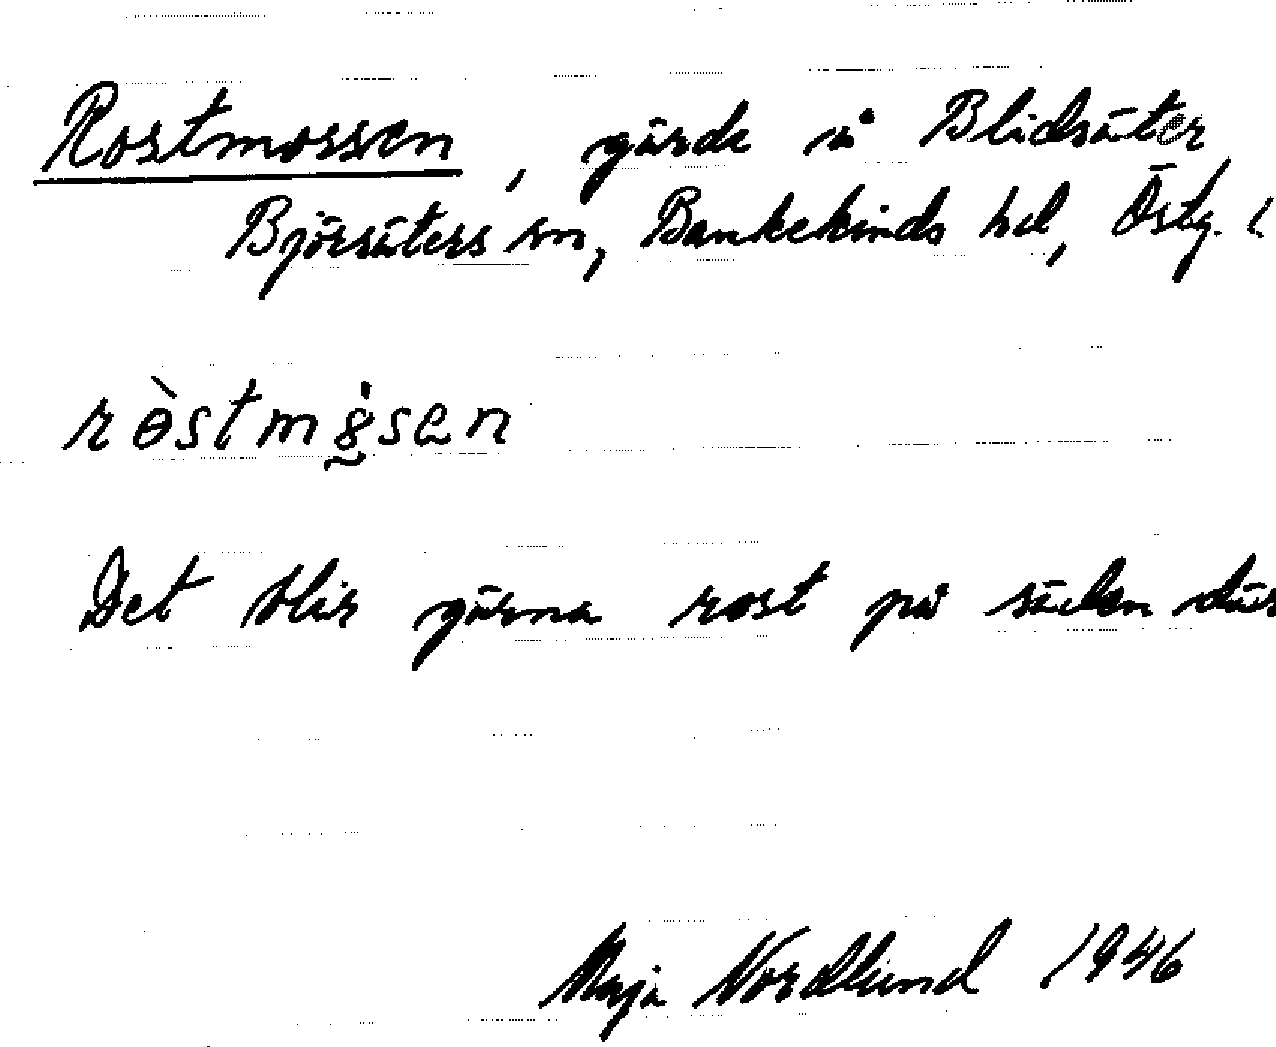 Rostmossen, gärde å Blidsäter
Björsäters sn, Bankekinds hd, Östg. l
ròstmo̤sen
Det blir gärna rost på säden där
Maja Nordlund 1946